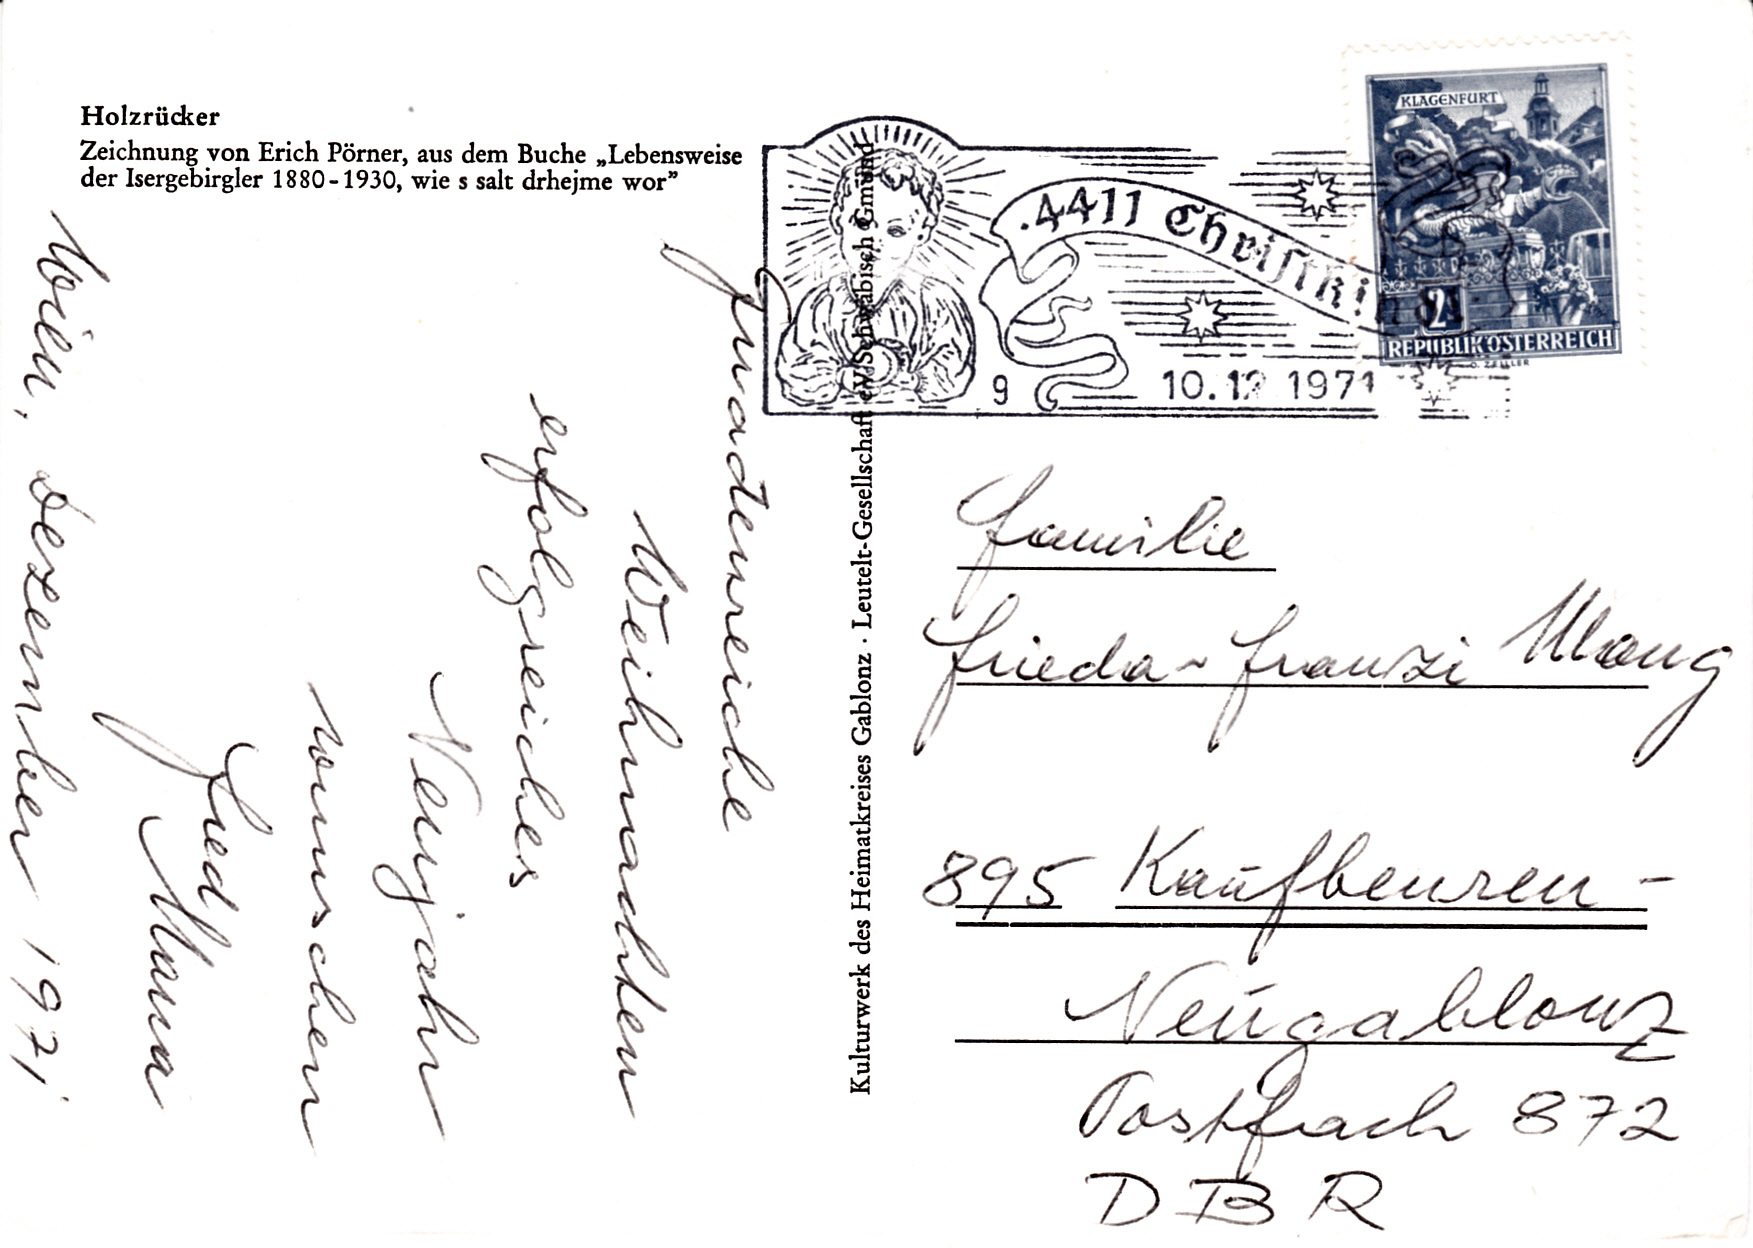 Holzrücker
Zeichnung von Erich Pörner, aus dem Buche „Lebensweise
der Isergebirgler 1880-1930, wie s salt drhejme wor”
Wien, Dezember 1971
gnadenreiche
Weihnachten
erfolgreiches
Neujahr
wünschen
Mama
Kulturwerk des Heimatkreises Gablonz · Leutelt-Gesellschaft eV Schwäbisch Gmünd
4411 Christkindl
9 10.12 1971
KLAGENFURT
2
REPUBLIK ÖSTERREICH
Familie
Frieda - Franzi
895 Kaufbeuren -
Neugablonz
Postfach 872
DBR